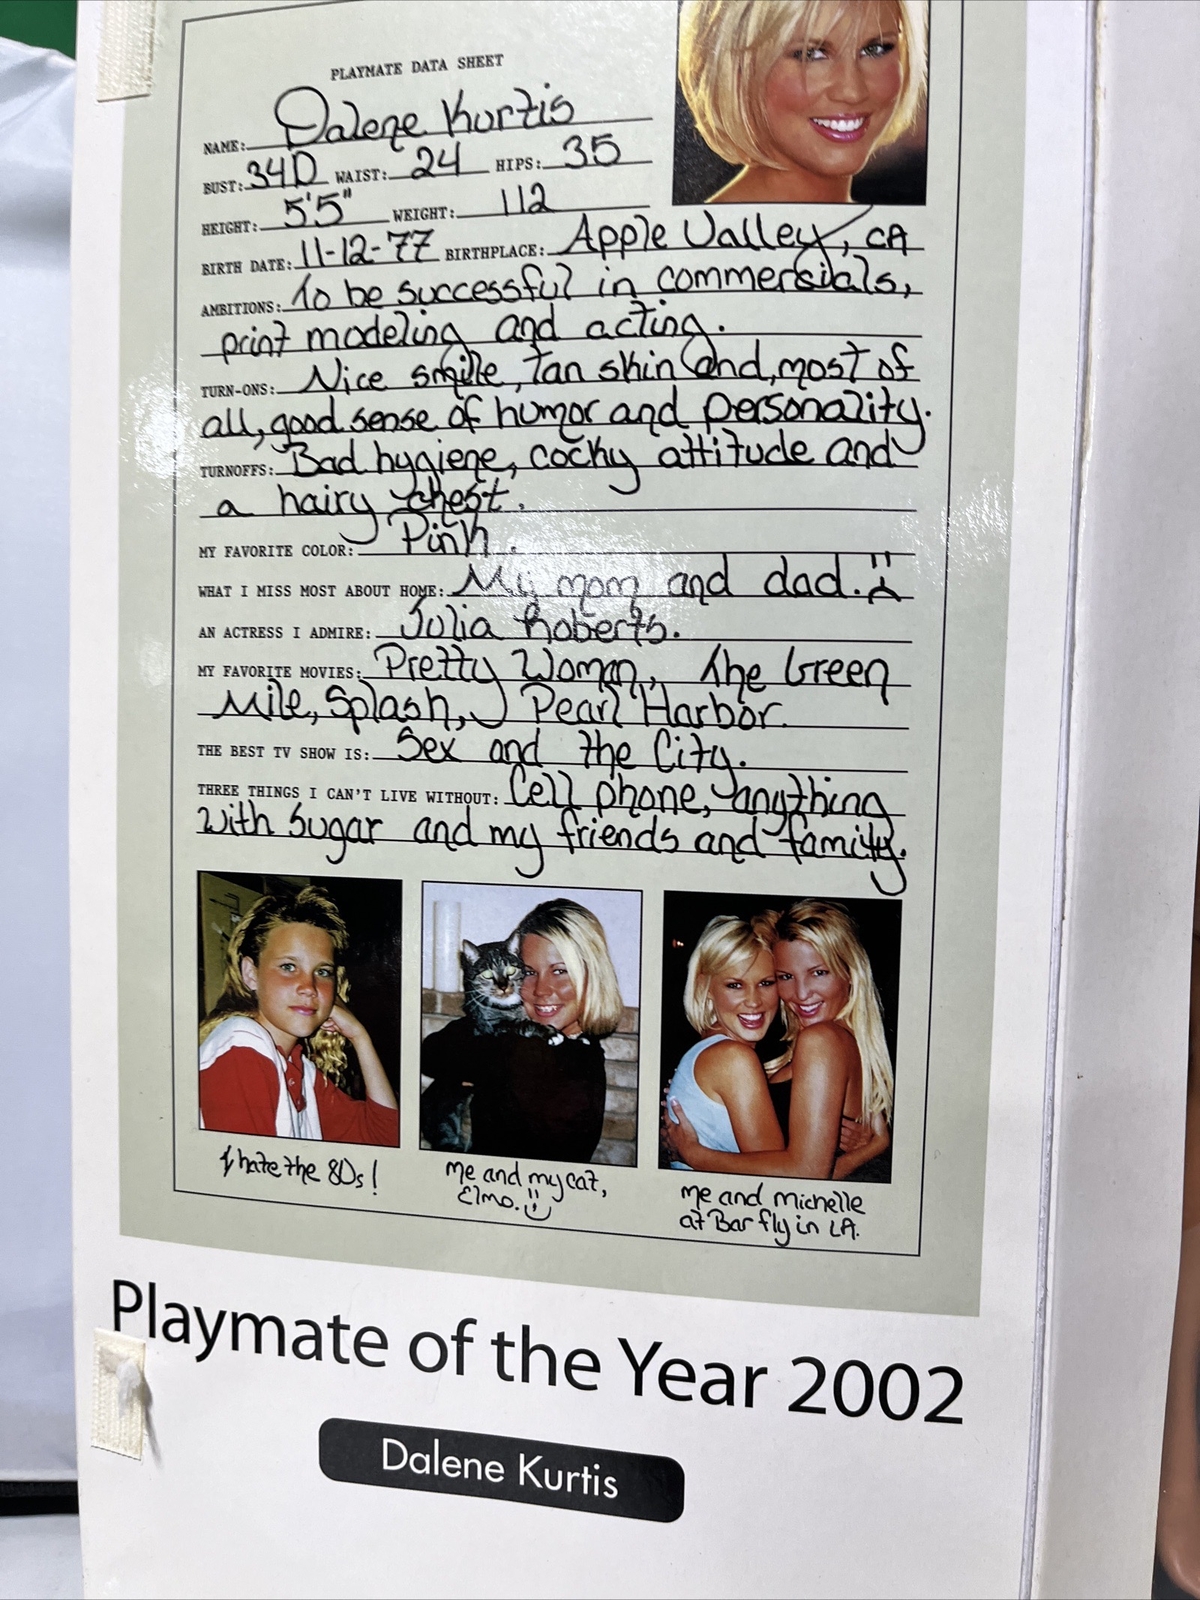 PLAYMATE DATA SHEET
NAME: Dalene Kurtis
BUST: 34D WAIST: 24 HIPS: 35
HEIGHT: 5'5" WEIGHT: 112
BIRTH DATE: 11-12-77 BIRTHPLACE: Apple Valley, CA
AMBITIONS: To be successful in commersials,
print modeling and acting.
TURN-ONS: Nice smile, tan skin and, most of
all, good sense of humor and personality.
TURNOFFS: Bad hygiene, cocky attitude and
a hairy chest.
MY FAVORITE COLOR: Pink.
WHAT I MISS MOST ABOUT HOME: My mom and dad.
AN ACTRESS I ADMIRE: Julia Roberts.
MY FAVORITE MOVIES: Pretty Woman, The Green
Mile, Splash, Pearl Harbor.
THE BEST TV SHOW IS: Sex and the City.
THREE THINGS I CAN'T LIVE WITHOUT: Cell phone, anything
with sugar and my friends and family.
I hate the 80s!
me and my cat,
Elmo.
me and michelle
at Bar fly in LA.
Playmate of the Year 2002
Dalene Kurtis